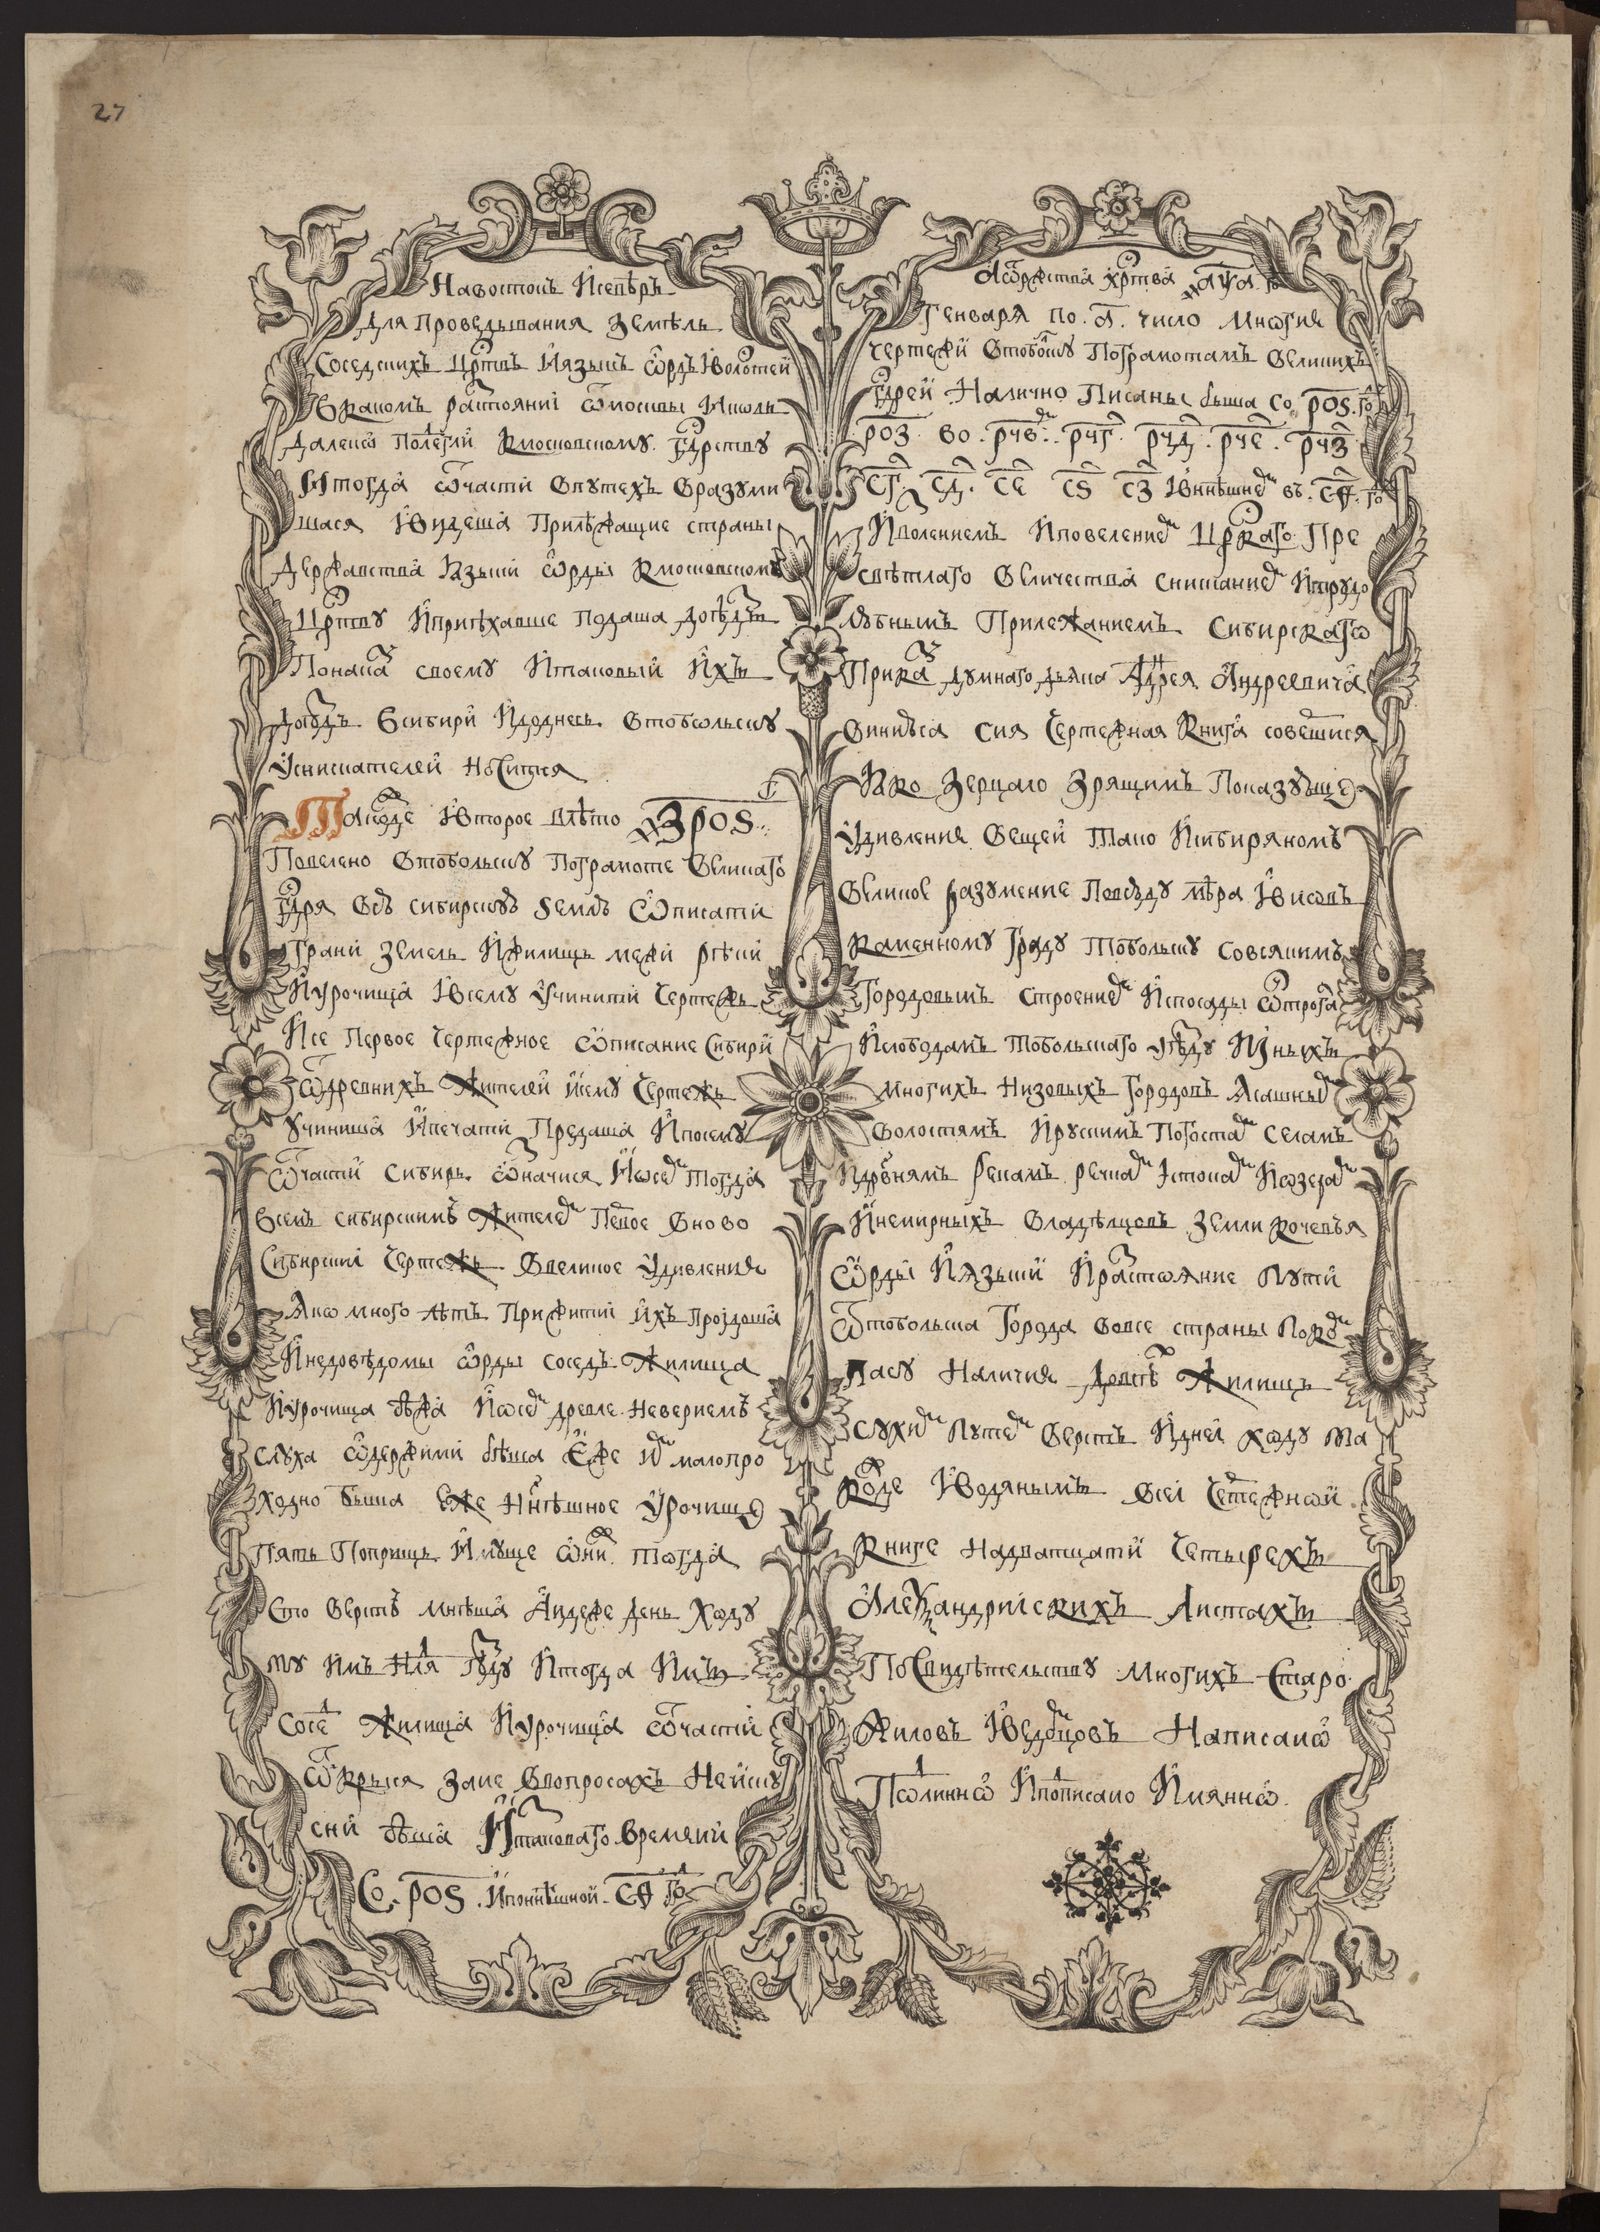 27
На востокъ и севѣръ
для проведывания земѣль
соседскихъ црствъ и языкъ ѡрдъ и волостей
в какомъ растоянии ѿ москвы и коль
далекѡ полегли к московскому гдрству
и тогда ѿчасти в путехъ вразуми
шася и видеша прилѣжащие страны
державства языки ѡрды к московскомꙋ
црству и приѣхавше подаша доѣзды
по наказ своему и таковый ихъ
доѣздъ в сибири и доднесь в тобольскꙋ
ꙋ снискателей носится
Такожде и второе в лѣто ҂зрос
повелено в тобольскꙋ по грамоте великаго
гдря всю сибирскую землю ѡписати
грани земель и жилищъ межи рѣки
и урочища и всему ꙋчинити чертежъ
и се первое чертежное ѡписание сибири
ѿ древнихъ жителей и сему чертежъ
ꙋчиниша и печати предаша и по сему
ѿчасти сибирь ѡзначися и ѡ семъ тогда
всемъ сибирскимъ жителем первое вново
сибирский чертежъ в великое удивление
якѡ много лѣтъ при житии ихъ проидоша
и недовѣдомы ѡрды соседъ жилища
и урочища бѣжа и ѡ сем древле невериемъ
слуха ѡдержими бѣша еже им мало про
ходно бѣша еже ннѣшное урочище
пять поприщъ имуще ѡни тогда
сто верстъ мнѣша а идеже день ходу
ту имъ нля году и тогда имъ
сосед жилища и урочища ѿчасти
ѿкрыся зане в вопросахъ не иску
сни бѣша и с таковаго времяни
со рос и по ннѣшной сѳ го
А ѿ ржства хртва ҂аѱа го
генваря по а число многие
чертежи в тобольскꙋ по грамотамъ великихъ
гдрей налично писаны быша со рос го
роз во рчв рчг рчд рче рчз
сг сд се сѕ сз и в ннѣшнем въ сѳ го
изволениемъ и повелением црскаго пре
свѣтлаго величества снисканием и трудо
любнымъ прилежаниемъ сибирскагѡ
приказ думнаго дьяка Андрея Андреевича
Виниꙋса сия чертежная книга совершися
яко зерцало зрящимъ показующе
удивление вещей тако и сибиряномъ
великое разумение по всходу мѣра и вискъ
каменному граду тобольску со всякимъ
городовымъ строением и с посады ѿстрога
и слободамъ тобольскаго уѣзду и иныхъ
многихъ низовыхъ городовъ ясашным
волостямъ и рускимъ погостам селамъ
и дрѣвнямъ рекамъ речкам истокам и ѡзерам
и немирныхъ владѣлцовъ земли кочевья
ѡрды и языки и растояние пути
ѿ тобольска города во все страны по ком
пасу наличия до всѣ жилищъ
сухим путем верстъ и дней ходу та
кожде и водянымъ в сей чертежной
книге на дватцати четырехъ
Александрийскихъ листахъ
по свидѣтельству многихъ старо
жиловъ и ведомцовъ написанѡ
подлиннѡ и подписано имяннѡ.